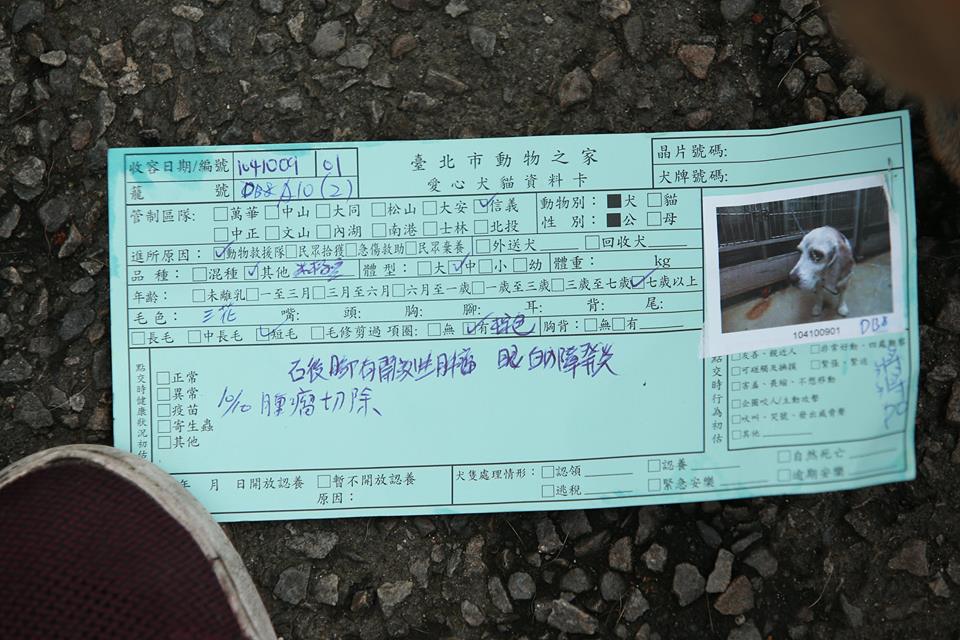 收容日期/編號 1041009 01
臺北市動物之家
晶片號碼:
籠 號 DB8 A10 (2)
愛心犬貓資料卡
犬牌號碼:
管制區隊: □萬華 □中山 □大同 □松山 □大安 ☑信義
動物別: ■犬 □貓
□中正 □文山 □內湖 □南港 □士林 □北投
性 別: ■公 □母
進所原因: ☑動物救援隊 □民眾拾獲 □急傷救助 □民眾棄養 □外送犬 □回收犬
品 種: □混種 ☑其他 米格魯 體 型: □大 ☑中 □小 □幼 體重: kg
年齡: □未離乳 □一至三月 □三月至六月 □六月至一歲 □一歲至三歲 □三歲至七歲 ☑七歲以上
毛色: 三花 嘴: 頭: 胸: 腳: 耳: 背: 尾:
□長毛 □中長毛 ☑短毛 □毛修剪過 項圈: □無 ☑有 胸背: □無 □有
104100901 DB8
點交時健康狀況初估
□正常
□異常
□疫苗
□寄生蟲
□其他
右後腳有開放性腫瘤 眼白內障發炎
10/10 腫瘤切除
點交時行為初估
□友善、親近人 □非常好動、四處觀察
□可碰觸及撫摸 □緊張、緊迫
□害羞、畏縮、不想移動
□企圖咬人/主動攻擊
□吠叫、哭號、發出威脅聲
□其他
年 月 日開放認養 □暫不開放認養
原因:
犬隻處理情形: □認領 □認養 □自然死亡
□逃脫 □緊急安樂 □逾期安樂